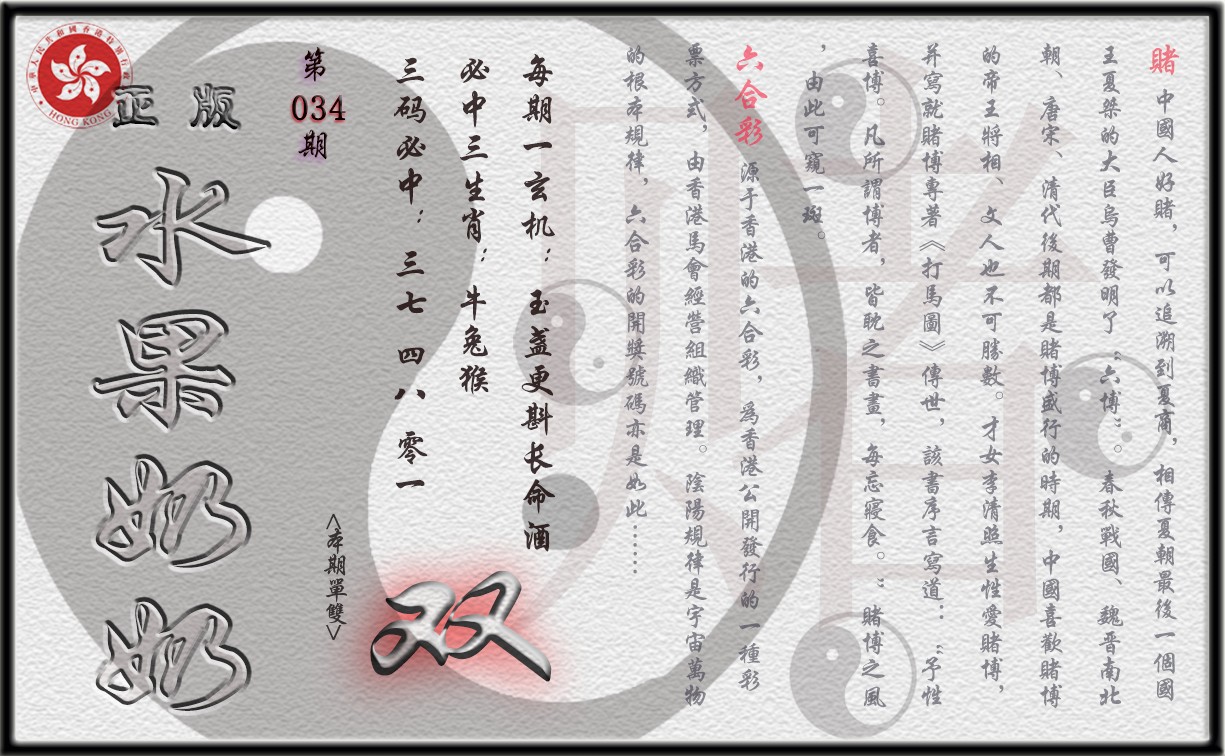 賭 中國人好賭，可以追溯到夏商，相傳夏朝最後一個國
王夏桀的大臣烏曹發明了“六博”。春秋戰國、魏晉南北
朝、唐宋、清代後期都是賭博盛行的時期，中國喜歡賭博
的帝王將相、文人也不可勝數。才女李清照生性愛賭博，
并寫就賭博專著《打馬圖》傳世，該書序言寫道：“予性
喜博。凡所謂博者，皆耽之書畫，每忘寢食。”賭博之風
，由此可窺一斑。
六合彩 源于香港的六合彩，爲香港公開發行的一種彩
票方式，由香港馬會經營組織管理。陰陽規律是宇宙萬物
的根本規律，六合彩的開獎號碼亦是如此……
每期一玄机：玉盏更斟长命酒
必中三生肖：牛兔猴
三码必中：三七 四八 零一
双
<本期單雙>
第
034
期
正版
水果奶奶
中華人民共和國香港特別行政區
HONG KONG
賭